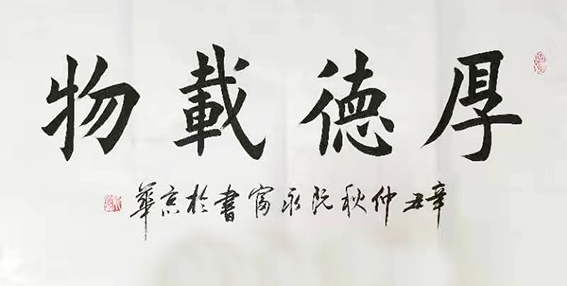 厚德載物
辛丑仲秋阮永富書於京華